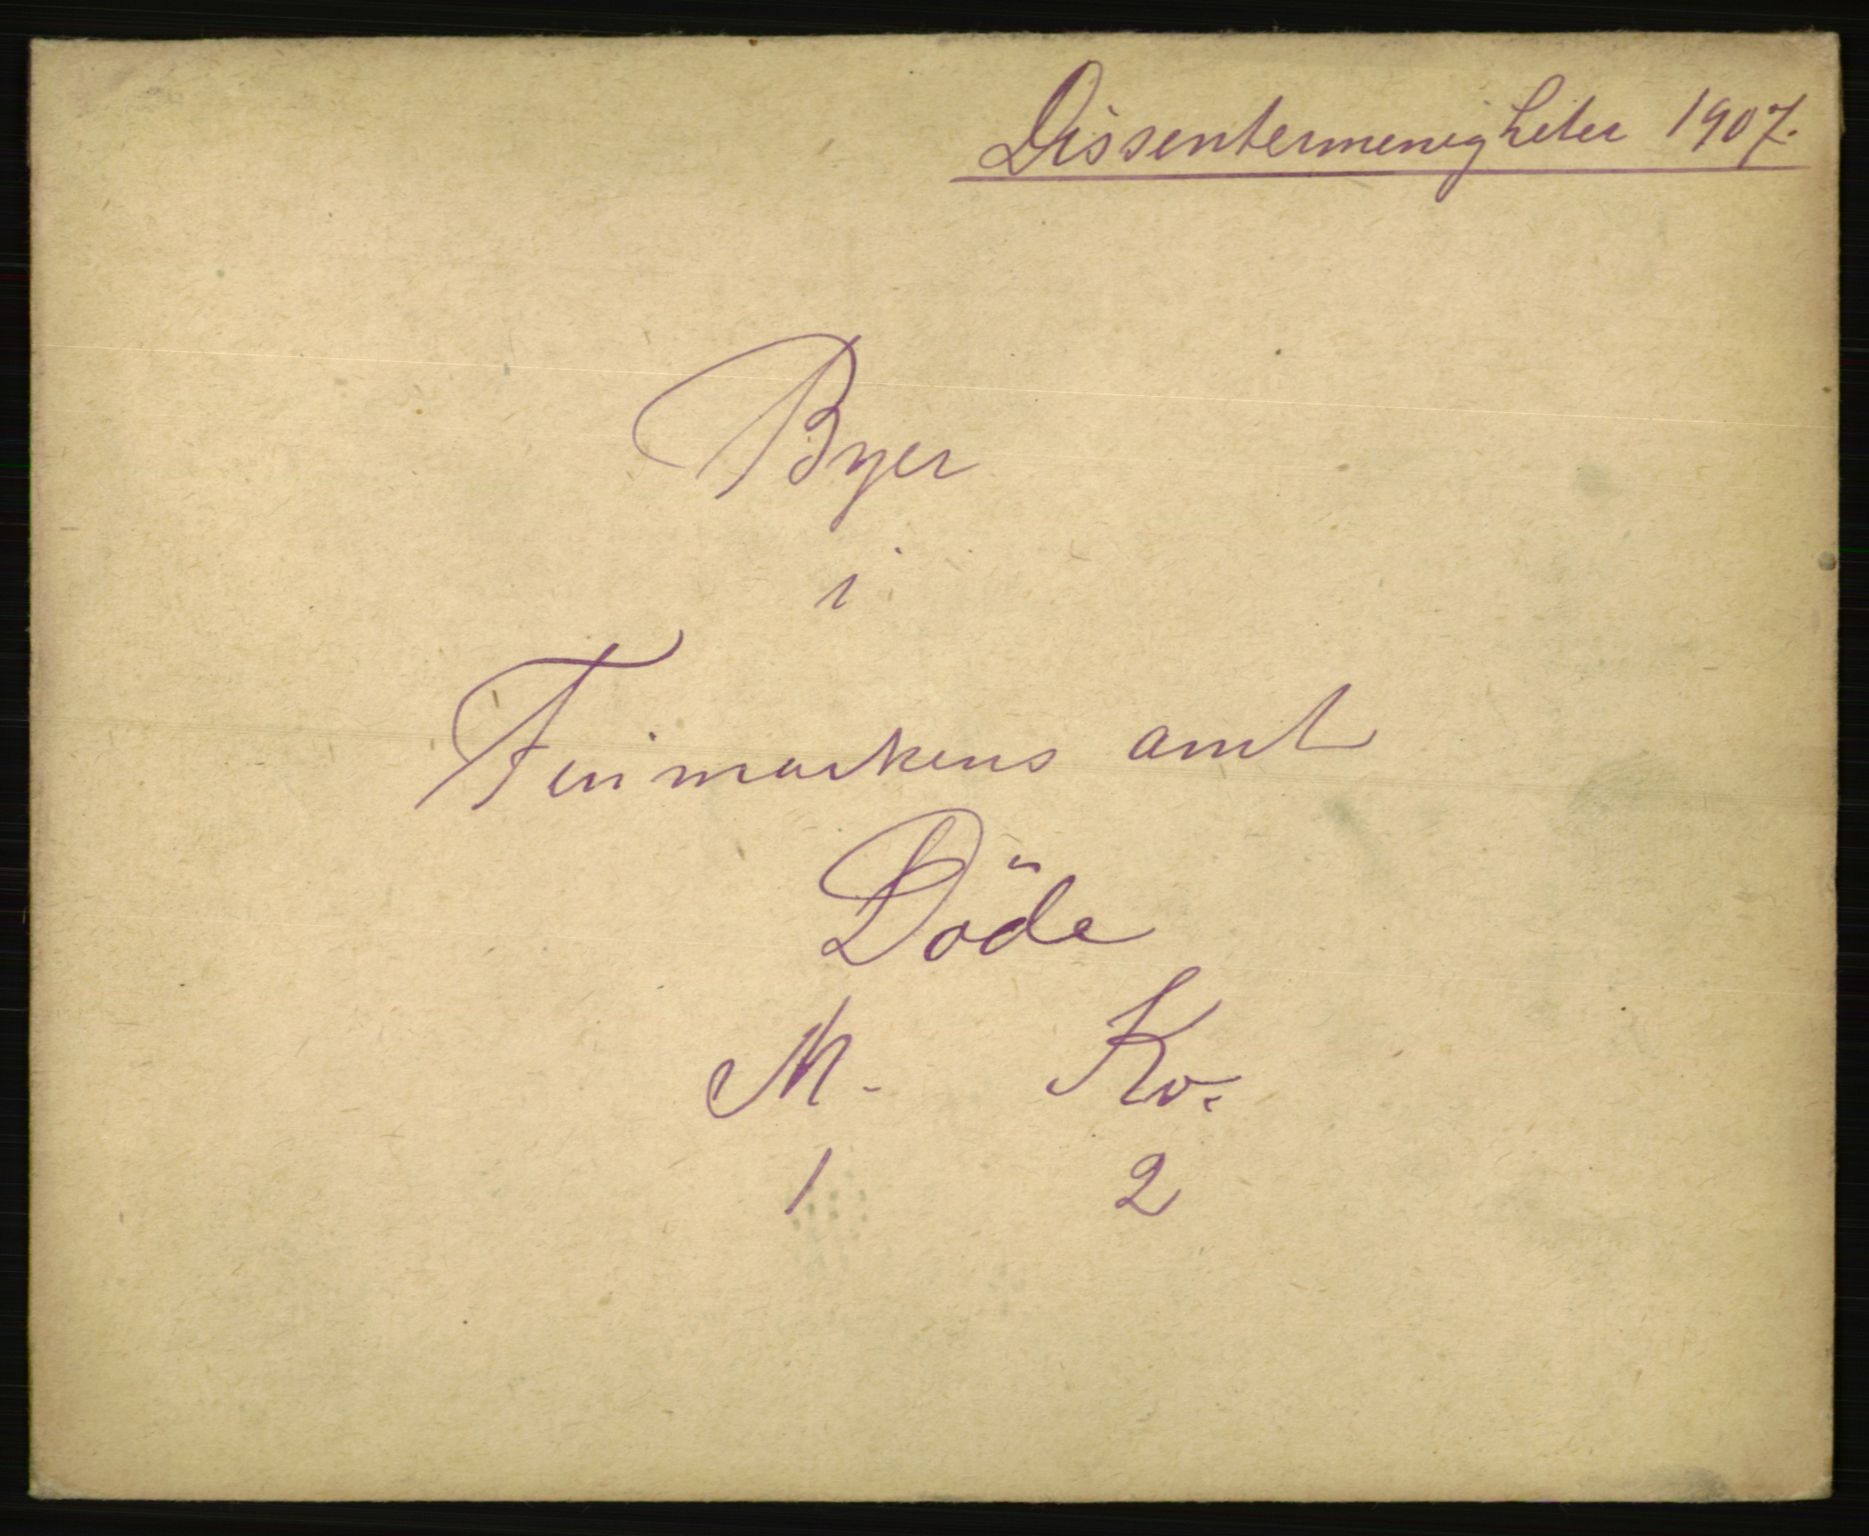 Dissentermenigheter 1907.
Byer
i
Finmarkens amt
Döde
M. Kv.
1 2